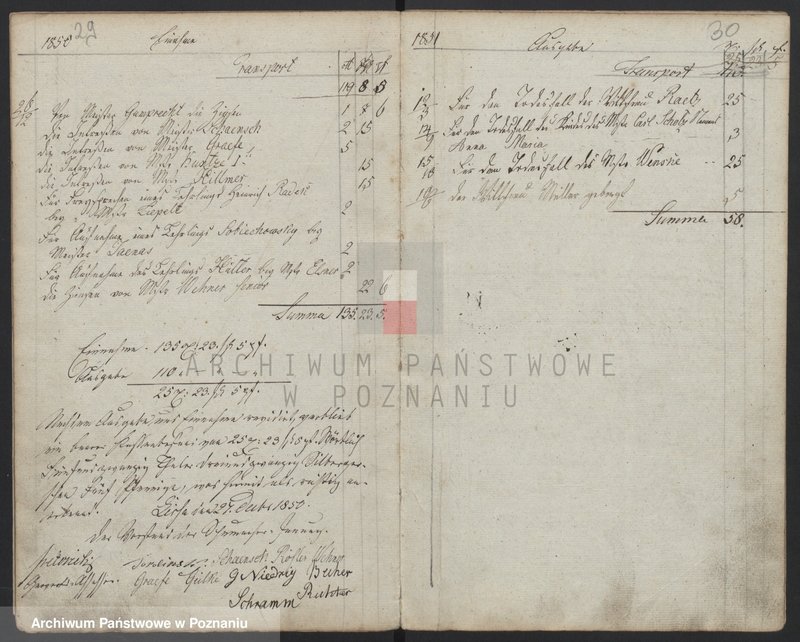 1850 29
Einnahme
Transport 119 8 5
Von Meister Gumprecht die Zinsen 1 7 6
Die Intressen von Meister Schaensch 2 15
die Intressen von Meister Graefe 5
die Intressen von Mstr Kuntze I. 15
die Intressen von Mstr Hillmer 15
Für Freysprechen eines Lehrlings Heinrich Radeck
bey Mstr Liepelt 2
Für Aufnahme eines Lehrlings Sobiechowsky bey
Meister Saenas 2
Für Aufnahme des Lehrlings Hüller bey Mstr Elsner 2
die Zinsen von Mstr Wehner senior 22 6
Summa 135. 23. 5.
Einnahme 135 23 5 pf.
Ausgabe 110
25 23 5 pf.
Nachdem Ausgabe und Einnahme revidirt, verblieb
ein baarer Kassenbestand von 25 23 5 pf. Wörtlich
Fünfundzwanzig Thaler dreiundzwanzig Silbergro-
schen Fünf Pfennige, was hiermit als richtig an-
erkannt.
Lissa den 27. Decbr 1850.
Der Vorstand der Schuhmacher-Innung.
Schaensch Rösler Wehner
Graefe Gülke G Niedrig Bucher
Schramm
1851 30
Ausgabe
Transport
Für den Todesfall der Wittfrau Raetz 25
Für den Todesfall des Kindes des Mstr Carl Scholz
Anna Maria 3
Für den Todesfall des Mstr Wenske 25
der Wittfrau Müller gebergt 5
Summa 58.
ARCHIWUM PAŃSTWOWE
W POZNANIU
Archiwum Państwowe w Poznaniu